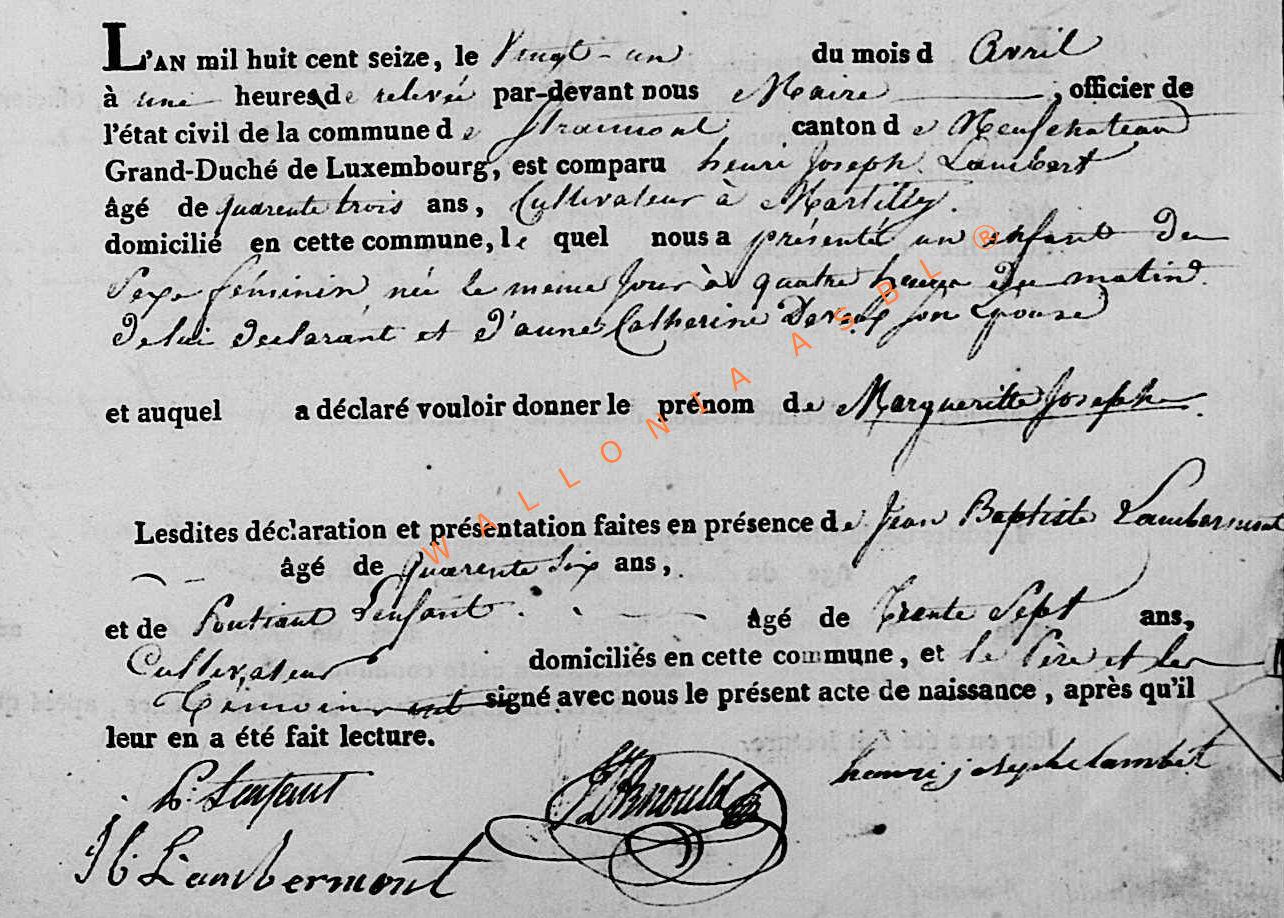 L'AN mil huit cent seize, le Vingt-un du mois d Avril
à une heures de relevée par-devant nous Maire, officier de
l'état civil de la commune de Straimont canton de Neufchateau
Grand-Duché de Luxembourg, est comparu henri Joseph Lambert
âgé de quarente trois ans, Cultivateur à Martilly.
domicilié en cette commune, le quel nous a présenté un enfant Du
Sexe féminin, née le meme Jour à quatre heures Du matin
De lui Declarant et D'anne Catherine son Epouse
et auquel a déclaré vouloir donner le prénom de Margueritte Josephe.
Lesdites déclaration et présentation faites en présence de Jean Baptiste Lambermont
âgé de quarente six ans,
et de Pontiant Lenfant âgé de Trente Sept ans,
Cultivateur domiciliés en cette commune, et le Père et les
Témoins ont signé avec nous le présent acte de naissance, après qu'il
leur en a été fait lecture.
P. Lenfant
Arnould
henri josephe lambert
J b Lambermont
WALLONIA ASBL ®